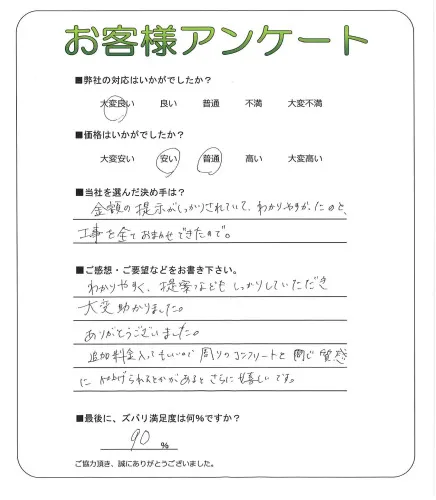 お客様アンケート
■弊社の対応はいかがでしたか？
大変良い 良い 普通 不満 大変不満
■価格はいかがでしたか？
大変安い 安い 普通 高い 大変高い
■当社を選んだ決め手は？
金額の提示がしっかりされていて、わかりやすかったのと、
工事を全ておまかせできたので。
■ご感想・ご要望などをお書き下さい。
わかりやすく、提案などもしっかりしていただき
大変助かりました。
ありがとうございました。
追加料金入ってもいいので周りのコンクリートと同じ質感
に仕上げられるとかがあるとさらに嬉しいです。
■最後に、ズバリ満足度は何％ですか？
90 %
ご協力頂き、誠にありがとうございました。